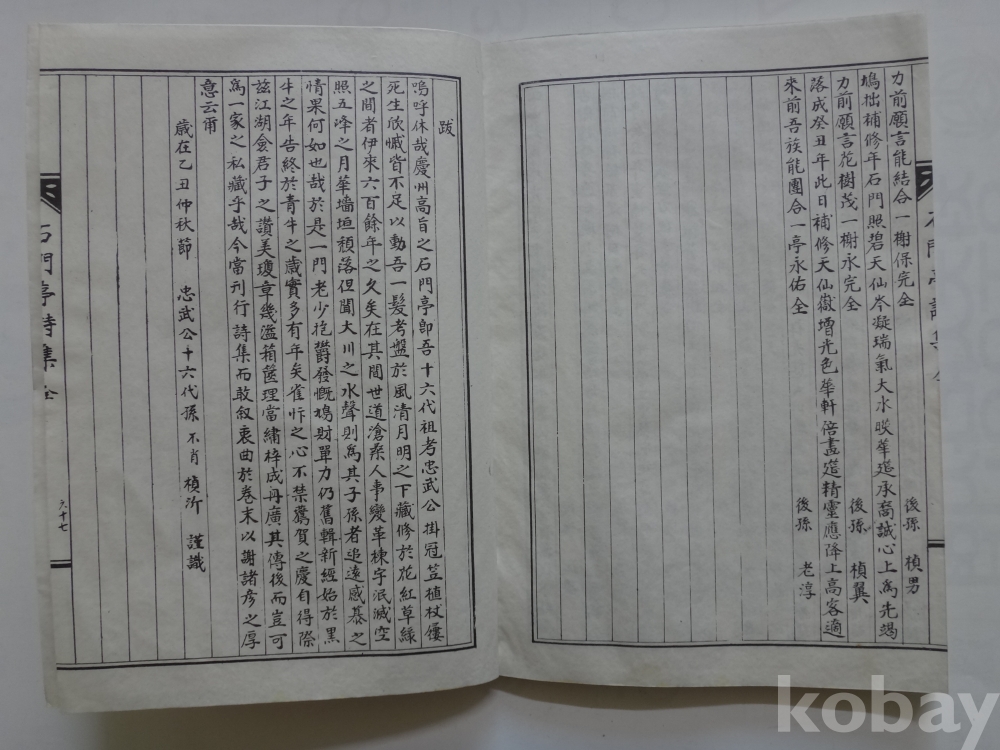 力前願言能結合一榭保完全
後孫 楨男
鳩拙補修年石門照碧天仙岑凝瑞氣大水暎華筵承裔誠心上為先竭
力前願言花樹茂一榭永完全
後孫 楨翼
落成癸丑年此日補修天仙嶽增光色華軒倍畫筵精靈應降上高客適
來前吾族能團合一亭永佑全
後孫 老淳
石門亭詩集 全
跋
嗚呼休哉慶州高旨之石門亭卽吾十六代祖考忠武公掛冠笠植杖僂
死生欣慽皆不足以動吾一髮考盤於風清月明之下藏修於花紅草綠
之間者伊來六百餘年之久矣在其間世道滄桑人事變革棟宇泯滅空
照五峰之月華墻垣頹落但聞大川之水聲則為其子孫者追遠感慕之
情果何如也哉於是一門老少抱欝發慨鳩財單力仍舊輯新經始於黑
牛之年告終於青牛之歲實多有年矣雀忭之心不禁鷰賀之慶自得際
玆江湖僉君子之讚美瓊章幾溢箱篋理當繡梓成冊廣其傳後而豈可
為一家之私藏乎哉今當刊行詩集而敢叙衷曲於卷末以謝諸彦之厚
意云爾
歲在乙丑仲秋節 忠武公十六代孫 不肖 楨沂 謹識
石門亭詩集 全
九十七
kobay